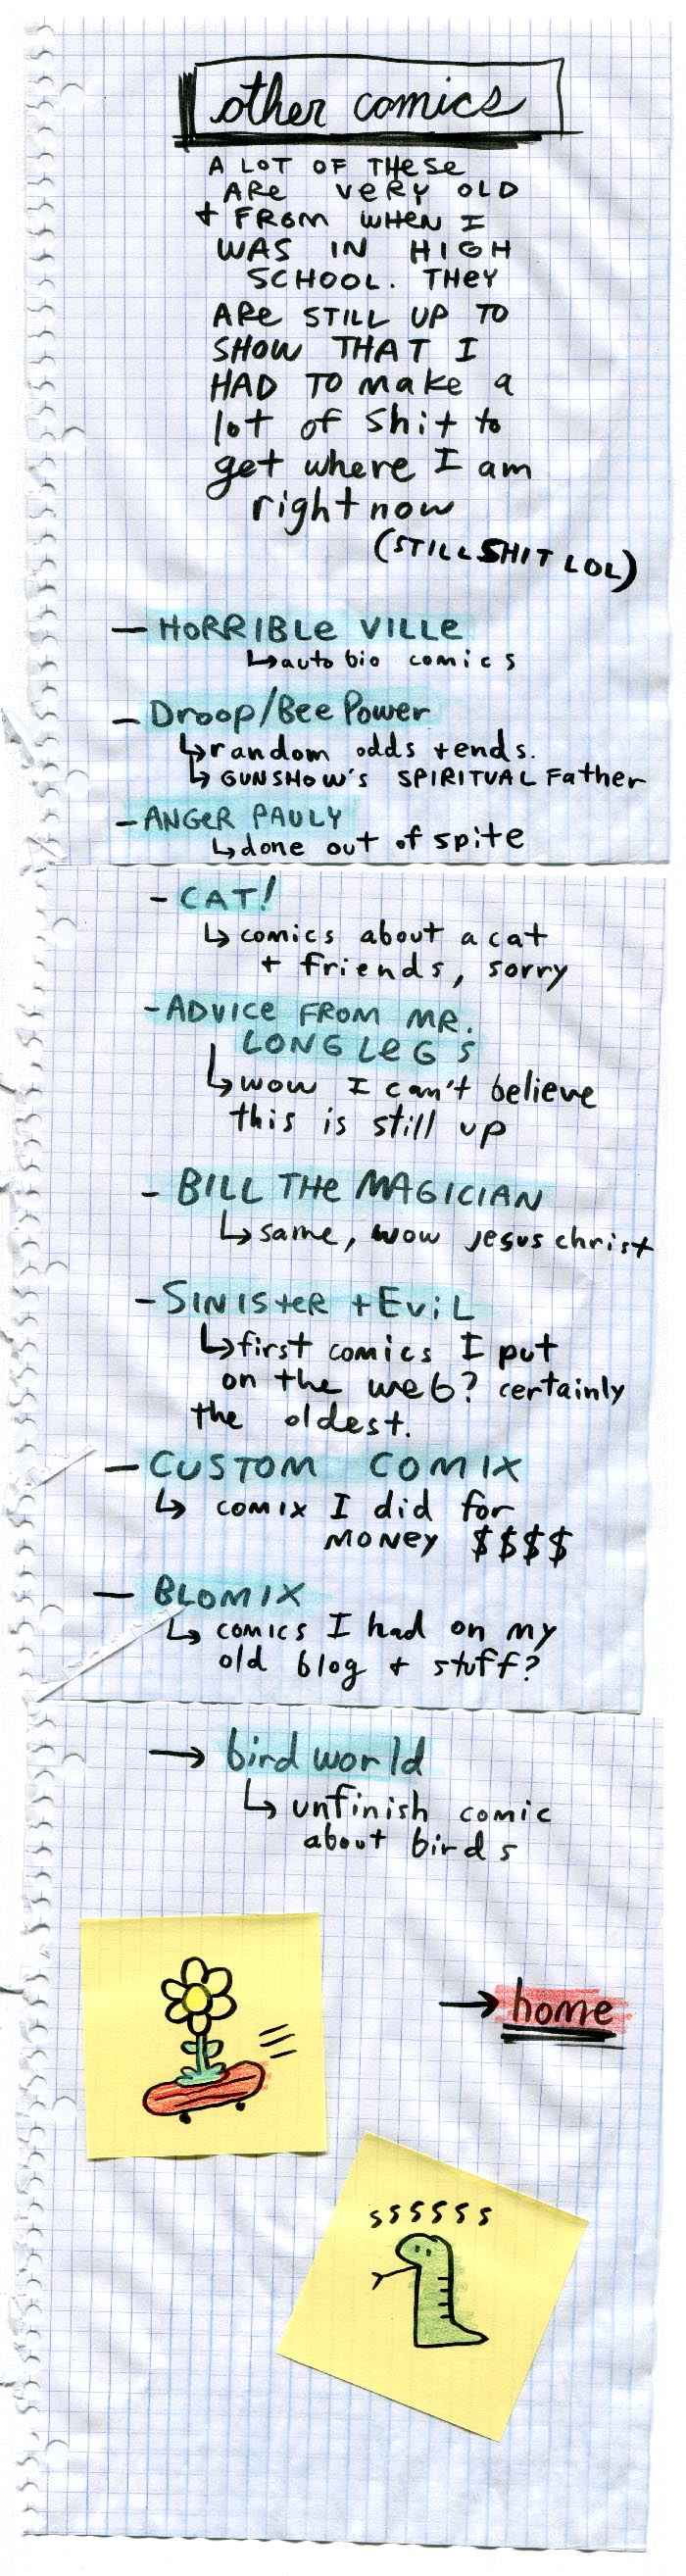 other comics
A LOT OF THESE
ARE VERY OLD
+ FROM WHEN I
WAS IN HIGH
SCHOOL. THEY
ARE STILL UP TO
SHOW THAT I
HAD TO make a
lot of shit to
get where I am
right now
(STILL SHIT LOL)
— HORRIBLE VILLE
↳auto bio comics
— Droop/Bee Power
↳random odds + ends.
↳ GUNSHOW'S SPIRITUAL Father
— ANGER PAULY
↳done out of spite
- CAT!
↳ comics about a cat
+ friends, sorry
- ADVICE FROM MR.
LONG LEGS
↳wow I can't believe
this is still up
- BILL THE MAGICIAN
↳same, wow jesus christ
- SINISTER + EVIL
↳first comics I put
on the web? certainly
the oldest.
— CUSTOM COMIX
↳ comix I did for
MONEY $$$$
— BLOMIX
↳ comics I had on my
old blog + stuff?
→ bird world
↳ unfinish comic
about birds
→ home
ssssss